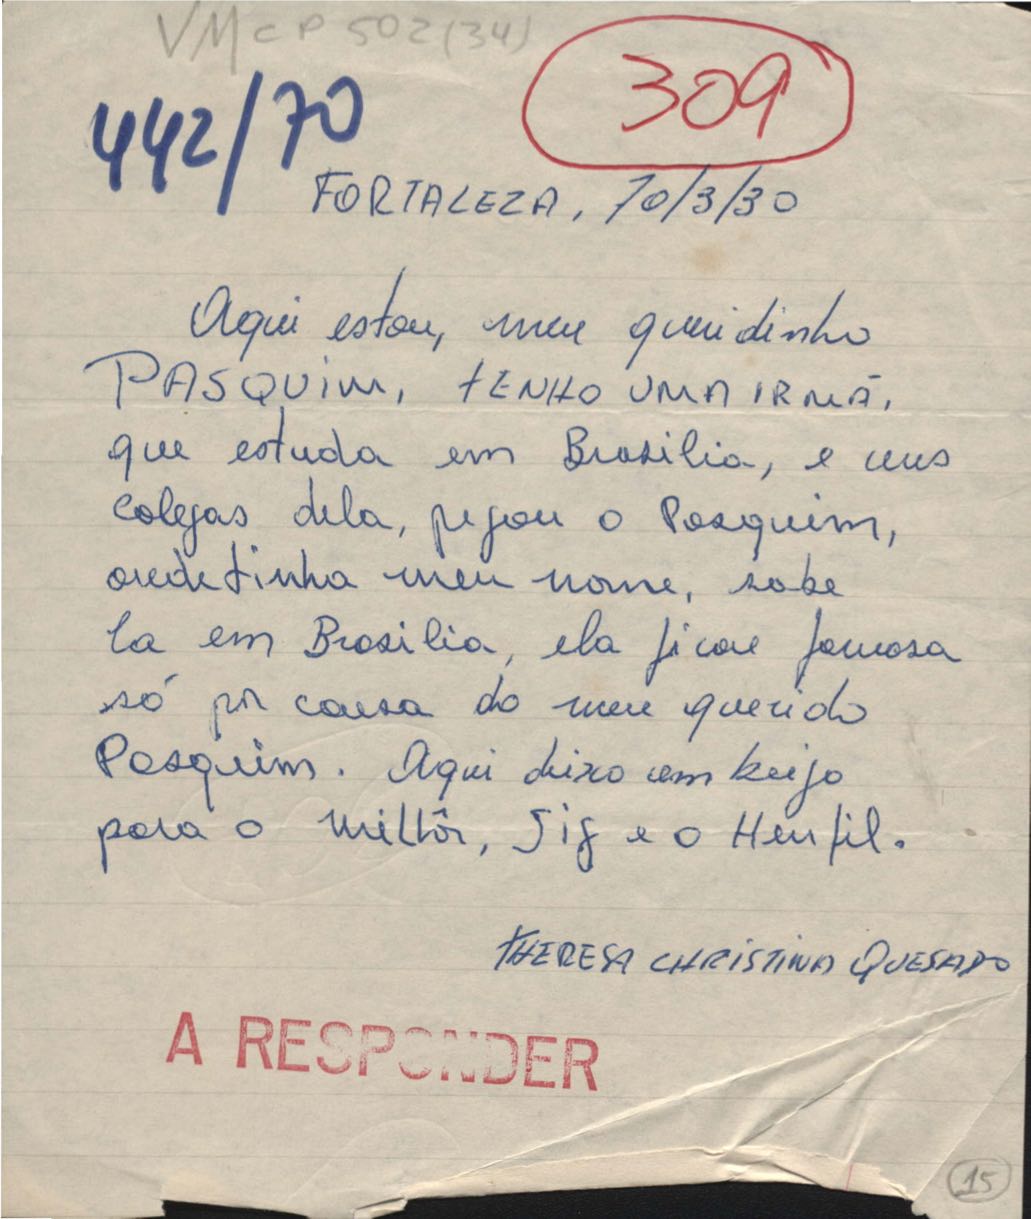 VMcP 502(34)
309
442/70
FORTALEZA, 70/3/30
Aqui estou, meu queridinho
PASQUIM, tENHO UMA IRMÃ,
que estuda em Brasilia, e uns
colegas dela, pegou o Pasquim,
tinha meu nome, sabe
la em Brasilia, ela ficou famosa
só por causa do meu querido
Pasquim. Aqui deixo um beijo
para o Millôr, Sig e o Henfil.
THERESA CHRISTINA QUESADO
A RESPONDER
15